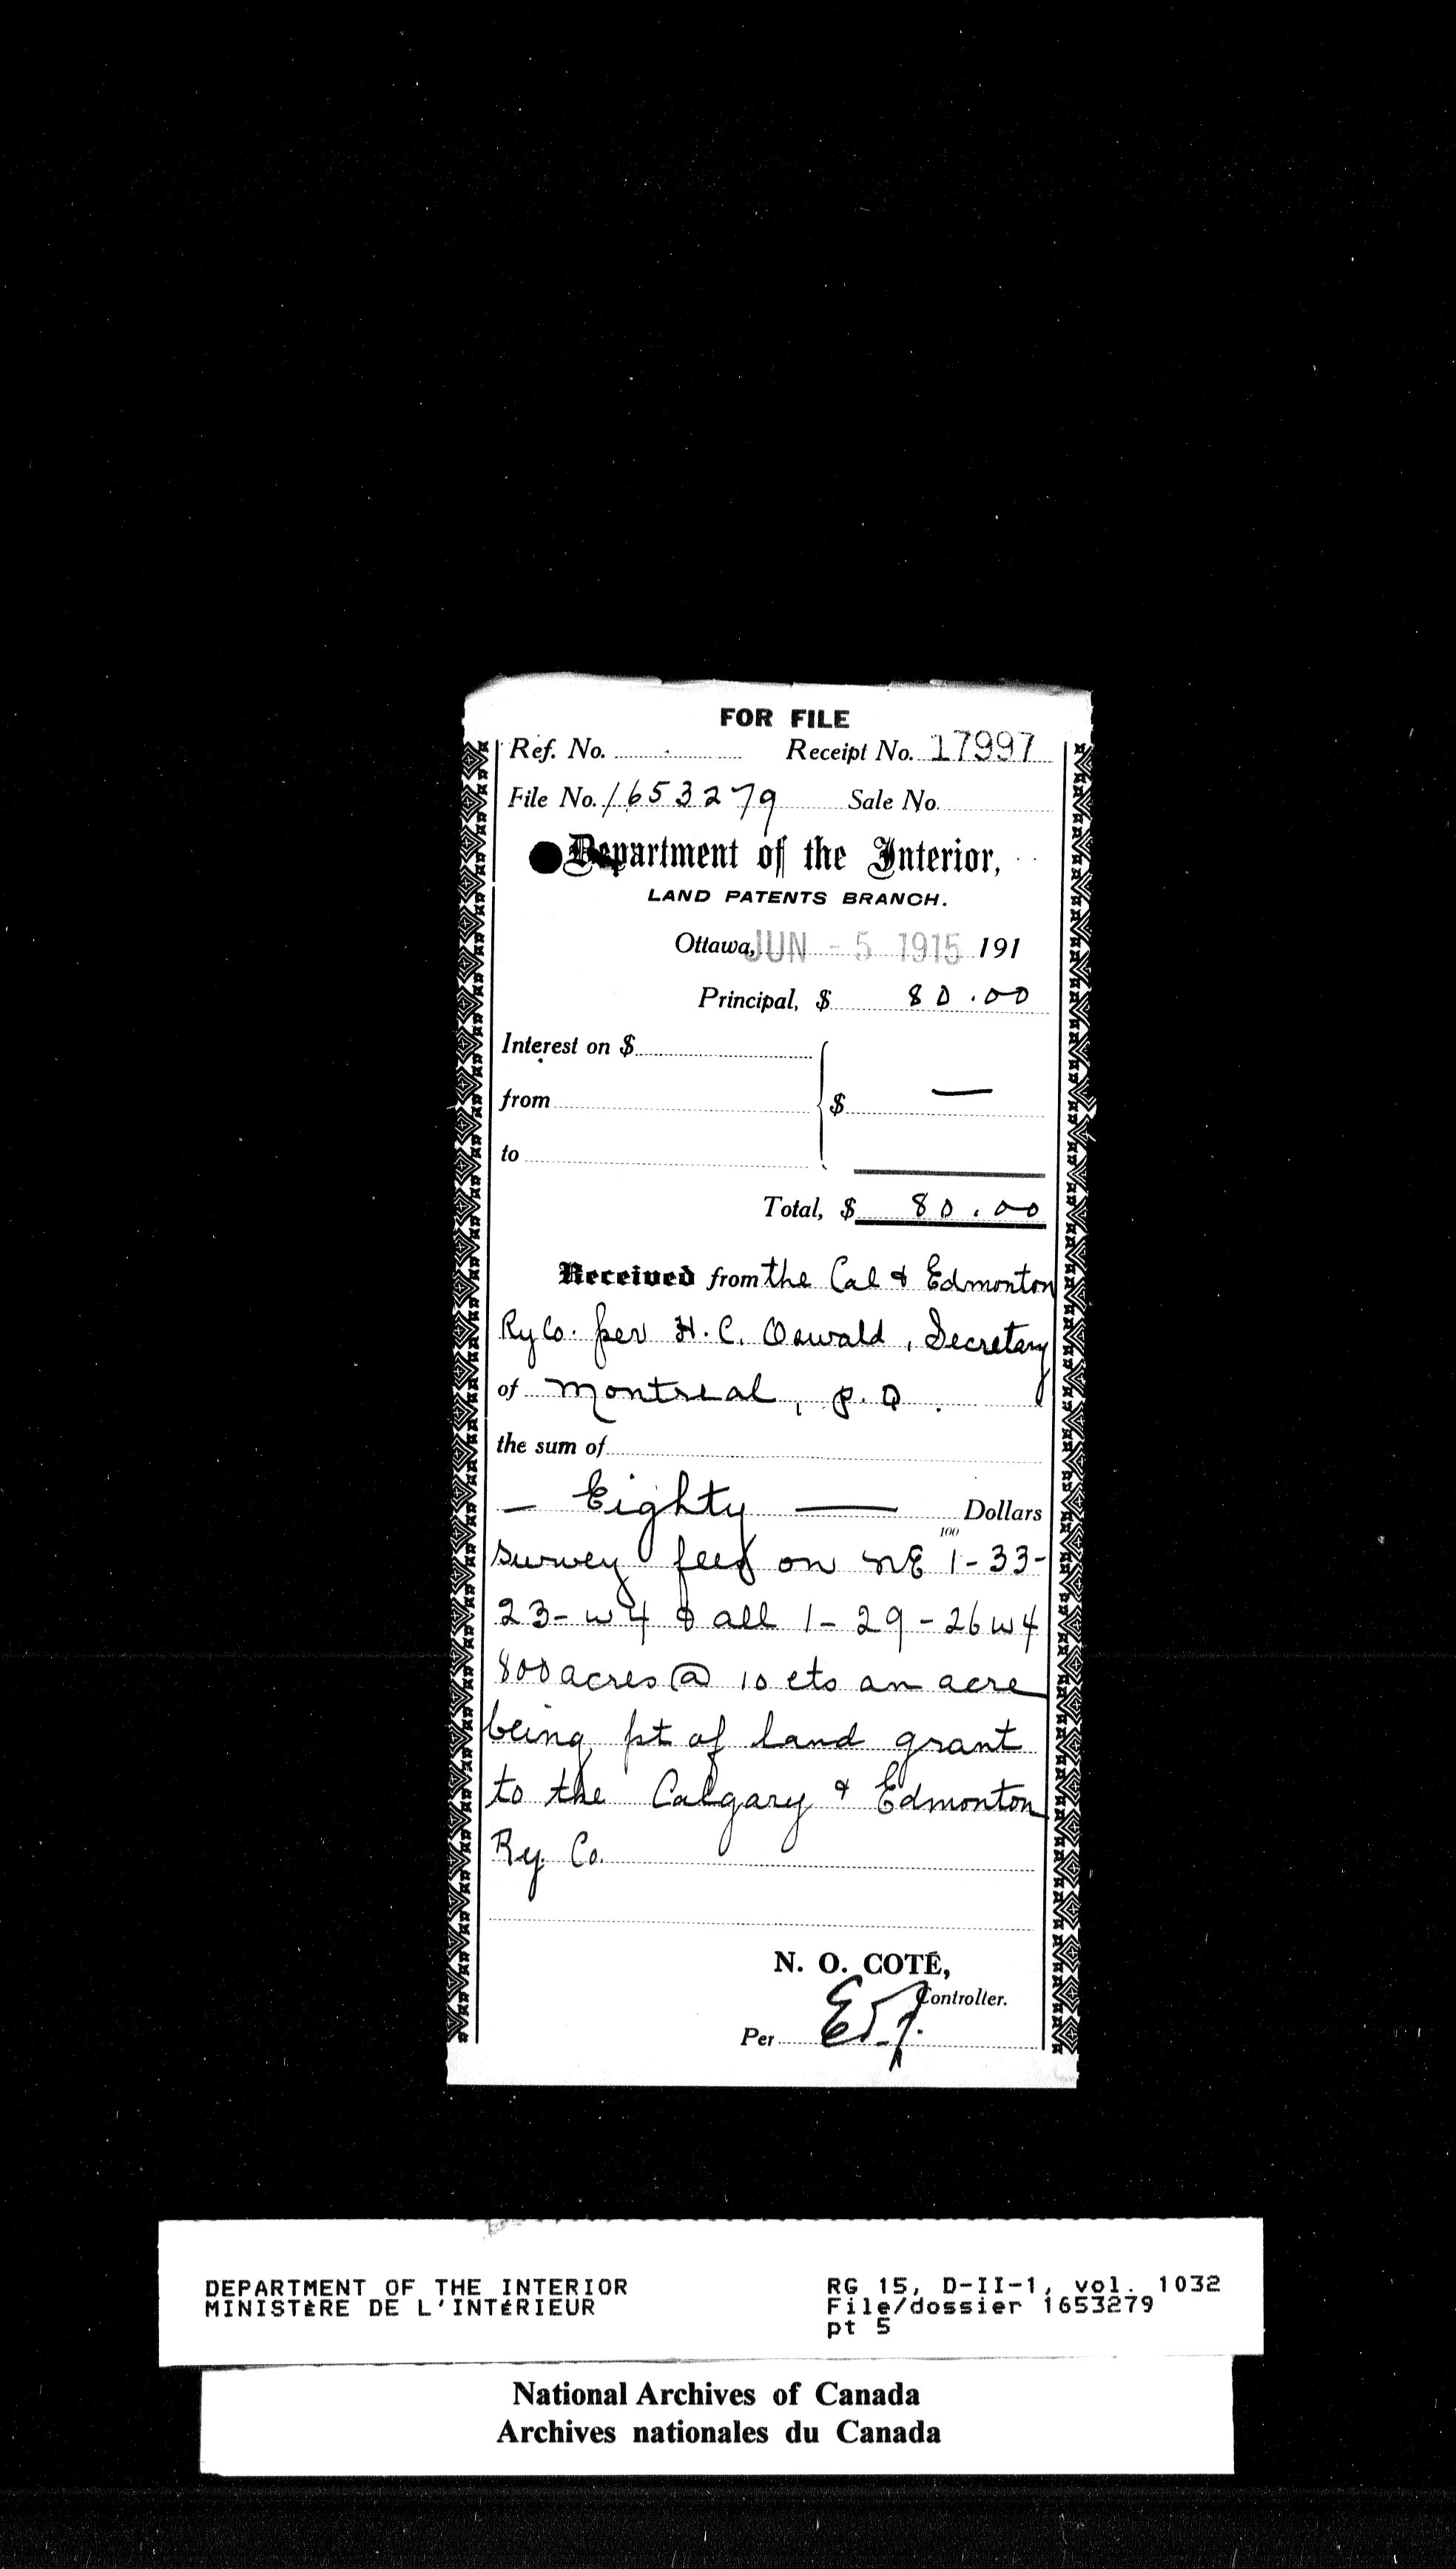 FOR FILE
Ref. No. Receipt No. 17997
File No. 1653279 Sale No.
Department of the Interior,
LAND PATENTS BRANCH.
Ottawa, JUN - 5 1915 191
Principal, $ 80.00
Interest on $
from $ —
to
Total, $ 80.00
Received from the Cal & Edmonton
Ry Co. per H. C. Oswald, Secretary
of Montreal, P. Q.
the sum of
— Eighty — Dollars
100
survey fees on NE 1-33-
23-W4 & all 1-29-26 W4
800 acres @ 10 cts an acre
being pt of land grant
to the Calgary & Edmonton
Ry. Co.
N. O. COTÉ,
Controller.
Per
DEPARTMENT OF THE INTERIOR RG 15, D-II-1, vol. 1032
MINISTÈRE DE L'INTÉRIEUR File/dossier 1653279
pt 5
National Archives of Canada
Archives nationales du Canada